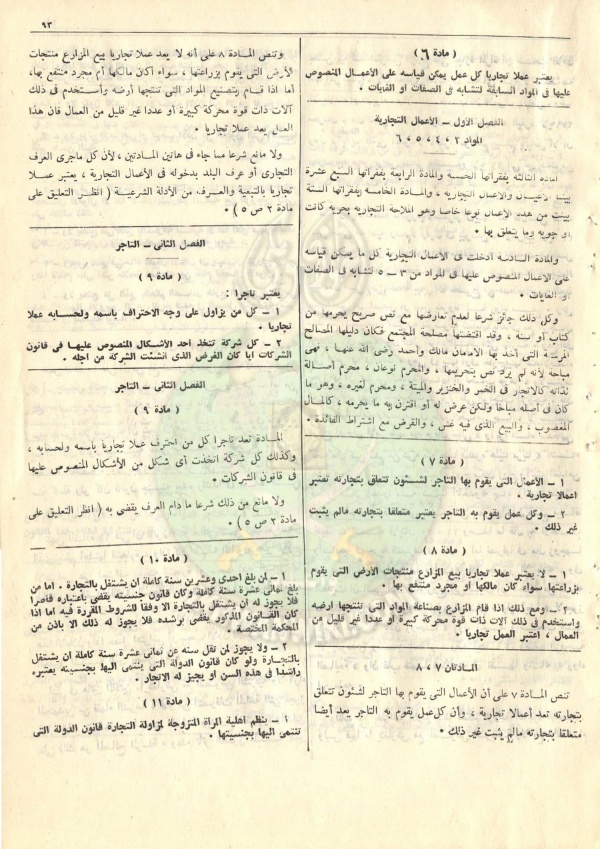 ٩٣
( مادة ٦ )
يعتبر عملا تجاريا كل عمل يمكن قياسه على الأعمال المنصوص
عليها فى المواد السابقة لتشابه فى الصفات او الغايات .
الفصل الأول – الأعمال التجارية
المواد ٣ ، ٤ ، ٥ ، ٦
المادة الثالثة بفقراتها الخمسة والمادة الرابعة بفقراتها السبع عشرة
بينتا الاعمال التجارية ، والمادة الخامسة بفقراتها الستة
بينت من هذه الاعمال نوعا خاصا وهو الملاحة التجارية بحرية كانت
أو جوية وما يتعلق بها .
والمادة السادسة ادخلت فى الاعمال التجارية كل ما يمكن قياسه
على الاعمال المنصوص عليها فى المواد من ٣ – ٥ لتشابه فى الصفات
أو الغايات .
وكل ذلك جائز شرعا لعدم تعارضها مع نص صريح يحرمها من
كتاب أو سنة ، وقد اقتضتها مصلحة المجتمع فكان دليلها المصالح
المرسلة التى أخذ بها الامامان مالك وأحمد رضى الله عنهما ، فهى
مباحة لأنه لم يرد نص بتحريمها ، والمحرم نوعان ، محرم أصالة
لذاته كالاتجار فى الخمر والخنزير والميتة ، ومحرم لغيره ، وهو ما
كان فى أصله مباحا ولكن عرض له أو اقترن به ما يحرمه ، كالمال
المغصوب ، والبيع الذى فيه غش ، والقرض مع اشتراط الفائدة .
( مادة ٧ )
١ – الأعمال التى يقوم بها التاجر لشئون تتعلق بتجارته تعتبر
اعمالا تجارية .
٢ – وكل عمل يقوم به التاجر يعتبر متعلقا بتجارته مالم يثبت
غير ذلك .
( مادة ٨ )
١ – لا يعتبر عملا تجاريا بيع المزارع منتجات الأرض التى يقوم
بزراعتها سواء كان مالكها أو مجرد منتفع بها .
٢ – ومع ذلك إذا قام المزارع بصناعة المواد التى تنتجها ارضه
واستخدم فى ذلك آلات ذات قوة محركة كبيرة أو عددا غير قليل من
العمال ، اعتبر العمل تجاريا .
المادتان ٧ ، ٨
تنص المادة ٧ على أن الأعمال التى يقوم بها التاجر لشئون تتعلق
بتجارته تعد أعمالا تجارية ، وأن كل عمل يقوم به التاجر يعد أيضا
متعلقا بتجارته مالم يثبت غير ذلك .
وتنص المادة ٨ على أنه لا يعد عملا تجاريا بيع المزارع منتجات
الأرض التى يقوم بزراعتها ، سواء أكان مالكها أم مجرد منتفع بها ،
أما اذا قام بتصنيع المواد التى تنتجها أرضه وأستخدم فى ذلك
آلات ذات قوة محركة كبيرة أو عددا غير قليل من العمال فان هذا
العمل يعد عملا تجاريا .
ولا مانع شرعا مما جاء فى هاتين المادتين ، لأن كل ماجرى العرف
التجارى أو عرف البلد بدخوله فى الأعمال التجارية ، يعتبر عملا
تجاريا بالتبعية والعرف من الأدلة الشرعية ( انظر التعليق على
مادة ٢ ص ٥ ) .
الفصل الثانى – التاجر
( مادة ٩ )
يعتبر تاجرا :
١ – كل من يزاول على وجه الاحتراف باسمه ولحسابه عملا
تجاريا .
٢ – كل شركة تتخذ احد الأشكال المنصوص عليها فى قانون
الشركات ايا كان الغرض الذى انشئت الشركة من اجله .
الفصل الثانى – التاجر
( مادة ٩ )
المادة تعد تاجرا كل من احترف عملا تجاريا باسمه ولحسابه ،
وكذلك كل شركة اتخذت أى شكل من الأشكال المنصوص عليها
فى قانون الشركات .
ولا مانع من ذلك شرعا ما دام العرف يقضى به ( انظر التعليق على
مادة ٢ ص ٥ ) .
( مادة ١٠ )
١ – لمن بلغ احدى وعشرين سنة كاملة ان يشتغل بالتجارة . اما من
بلغ ثمانى عشرة سنة وكان قانون جنسيته يقضى باعتباره قاصرا
فلا يجوز له ان يشتغل بالتجارة الا وفقا للشروط المقررة فيه اما اذا
كان القانون المذكور يقضى برشده فلا يجوز له ذلك الا باذن من
المحكمة المختصة .
٢ – ولا يجوز لمن تقل سنه عن ثمانى عشرة سنة كاملة ان يشتغل
بالتجارة ولو كان قانون الدولة التى ينتمى اليها بجنسيته يعتبره
راشدا فى هذه السن او يجيز له الاتجار .
( مادة ١١ )
١ – ينظم اهلية المرأة المتزوجة لمزاولة التجارة قانون الدولة التى
تنتمى اليها بجنسيتها .